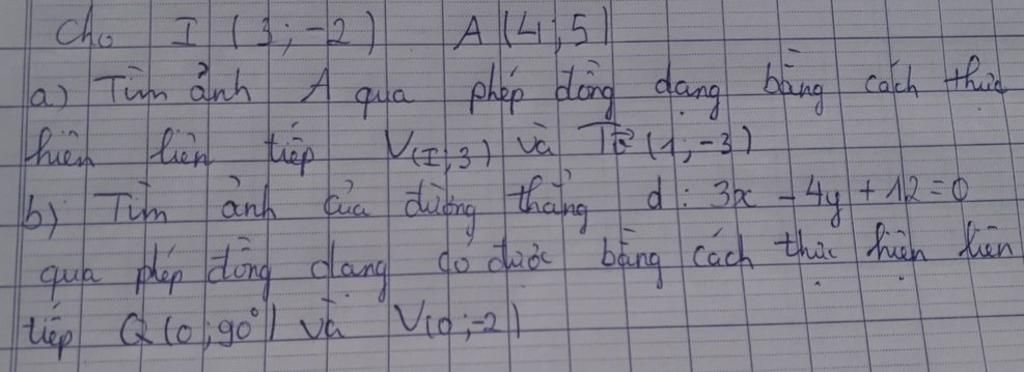 Cho I (3;-2) A(4;5)
a) Tìm ảnh A qua phép đồng dạng bằng cách thực
hiện liên tiếp V(I;3) và T (1;-3)
b) Tìm ảnh của đường thẳng d: 3x - 4y + 12 = 0
qua phép đồng dạng có được bằng cách thực hiện liên
tiếp Q(0;90°) và V(0;-2)